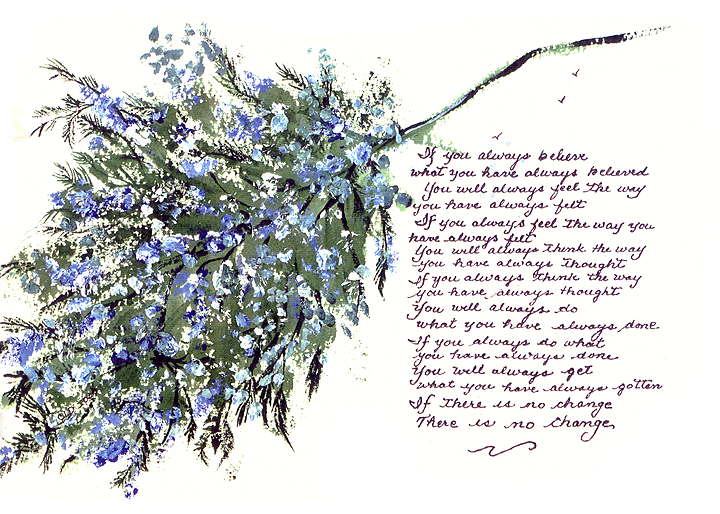 If you always believe
what you have always believed
You will always feel the way
you have always felt
If you always feel the way you
have always felt
You will always think the way
you have always thought
If you always think the way
you have always thought
You will always do
what you have always done
If you always do what
you have always done
You will always get
what you have always gotten
If there is no change
There is no change